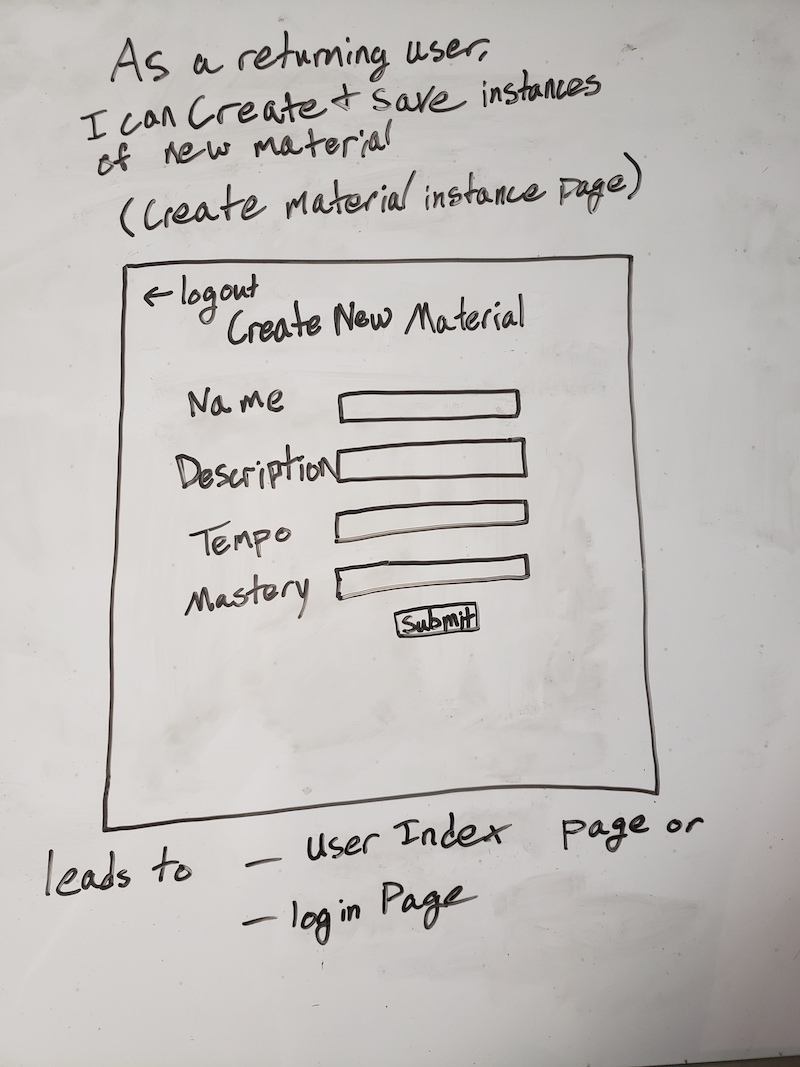 As a returning user,
I can Create + save instances
of new material
(Create material instance page)
← logout
Create New Material
Name
Description
Tempo
Mastery
Submit
leads to – User Index page or
– login Page